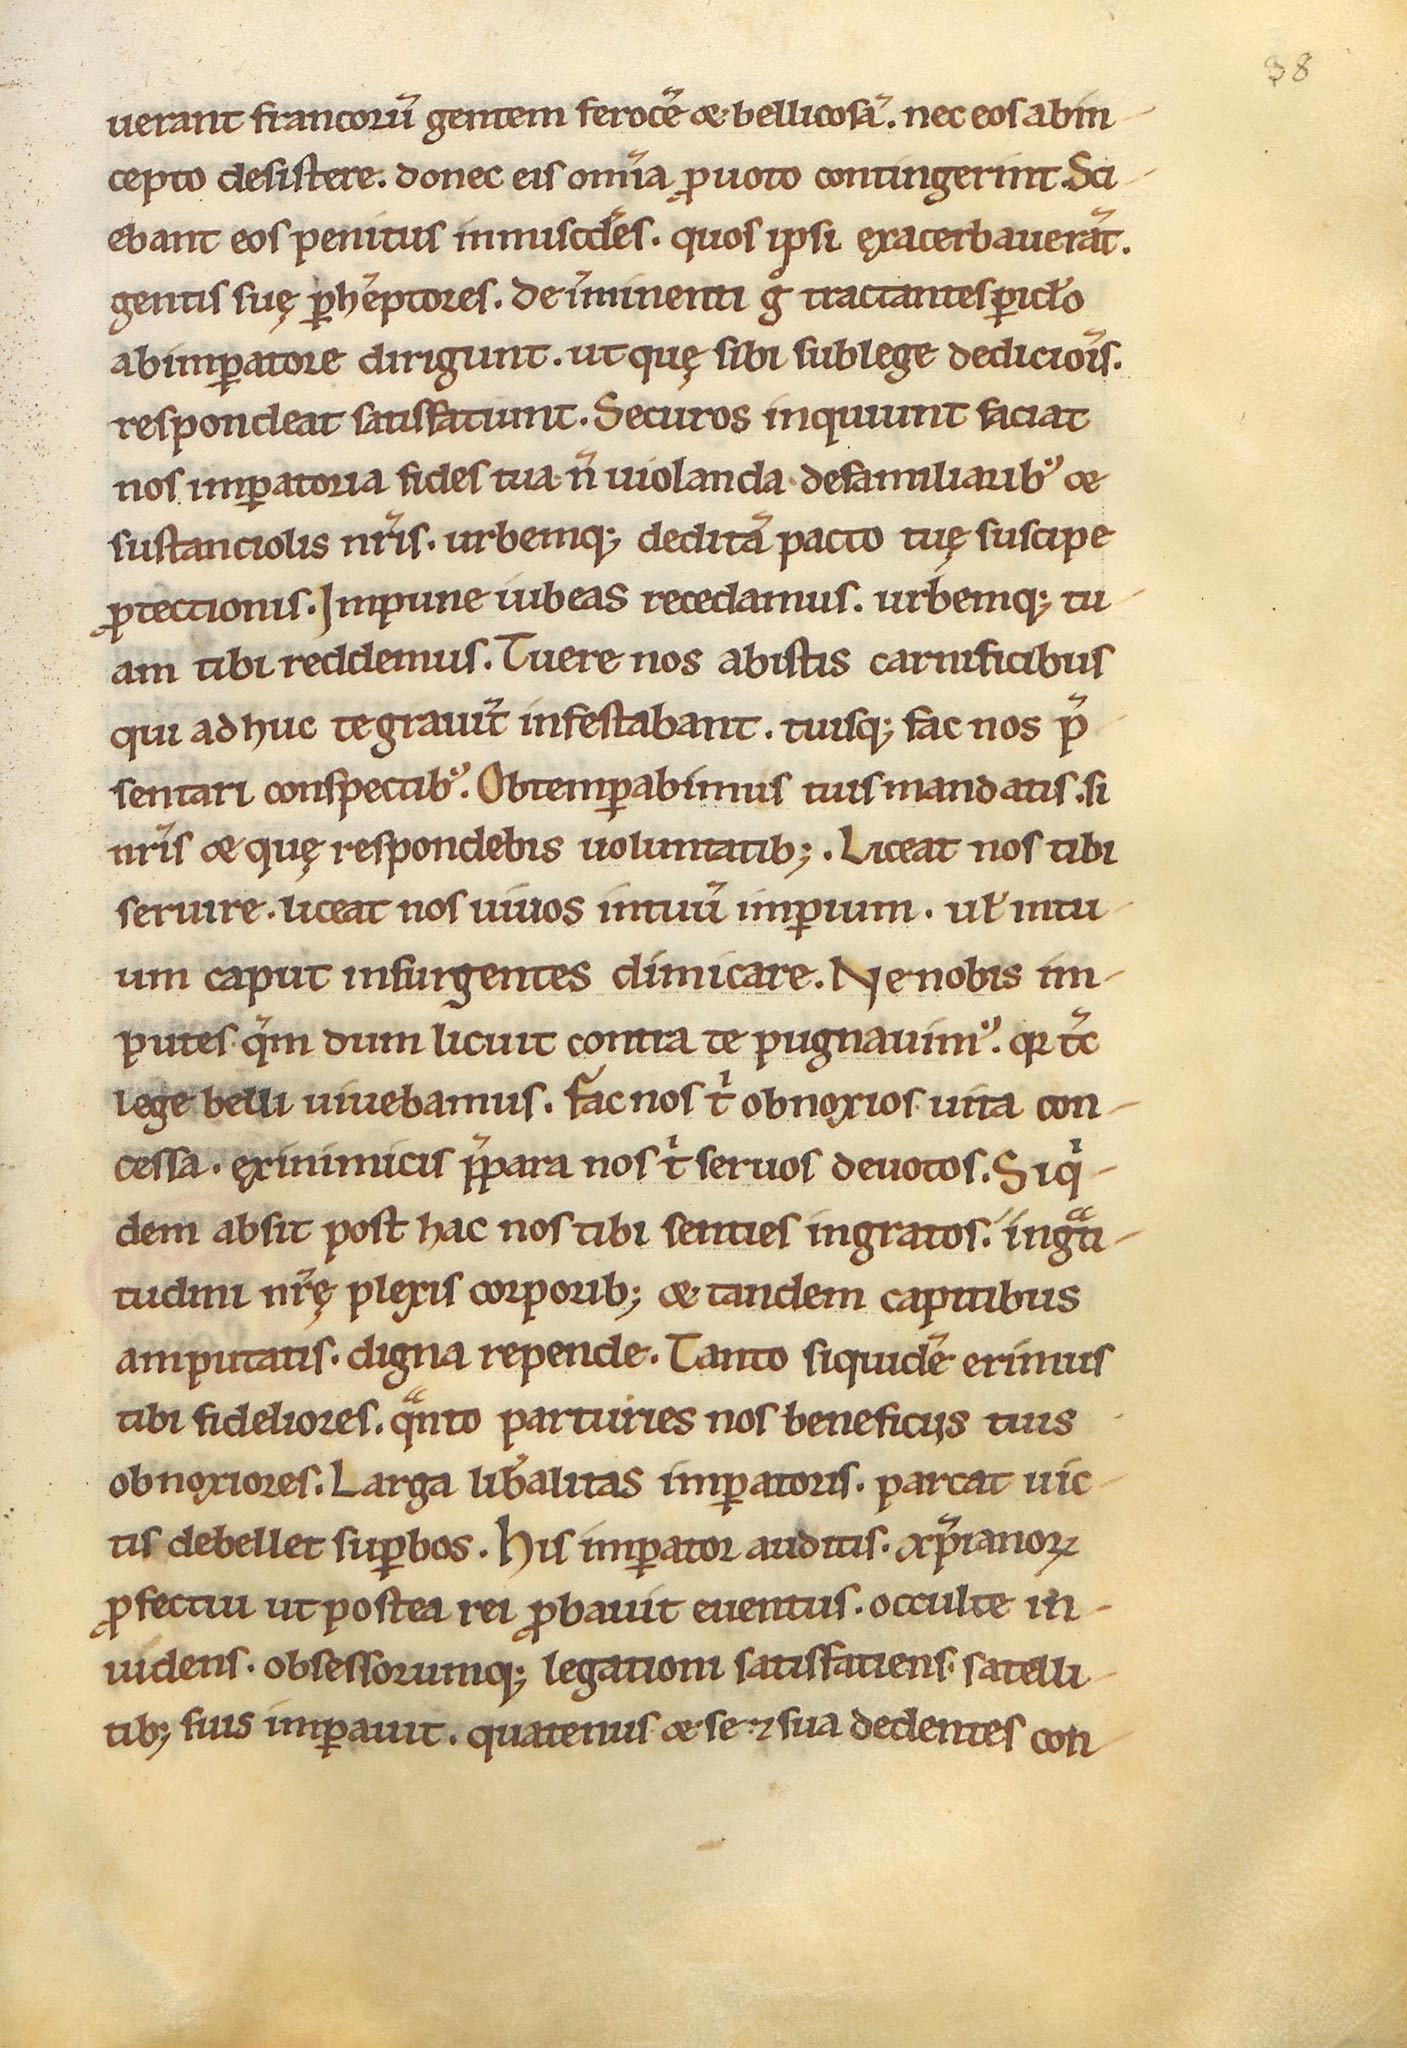 38
uerant francorū gentem ferocē & bellicosā. nec eos abin-
cepto desistere. donec eis om̄ia ꝓ uoto contingerint. Sci-
ebant eos penitus inmiscd̄es. quos ipsi exacerbauerāt.
gentis suę ꝑhēptores. De īminenti gͦ tractantes ꝑicło
ab imꝑatore dirigunt. ut quę sibi sub lege dedicioīs.
respondeat satisfatiunt. Securos inquiunt faciat
nos imꝑatoria fides tua n̄ uiolanda. de familiarib᷒ &
sustanciolis nr̄is. urbemq; deditā pacto tuę suscipe
ꝓtectionis. Impune iubeas recedamus. urbemq; tu-
am tibi reddemus. Tuere nos ab istis carnificibus
qui ad huc te grauit̄ infestabant. tuisq; fac nos p̄-
sentari conspectib᷒. Obtemꝑabimus tuis mandatis. si
nr̄is & quę respondebis uoluntatib;. Liceat nos tibi
seruire. liceat nos uiuos in tuū imꝑium. uł in tu-
um caput insurgentes dimicare. Ne nobis im-
putes qm̄ dum licuit contra te pugnauim᷒. qr tc̄
lege belli uiuebamus. Fac nos tⁱ obnoxios uita con-
cessa. ex inimicis p̄ꝑara nos tⁱ seruos deuotos. Siqⁱ-
dem absit post hac nos tibi senties ingratos. ingᵃti-
tudini nr̄ę plexis corporib; & tandem capitibus
amputatis. digna repende. Tanto siquidē erimus
tibi fideliores. qᵃnto parturies nos beneficijs tuis
obnoxiores. Larga lib̄alitas imꝑatoris. parcat uic-
tis debellet suꝑbos. His imꝑator auditis. xp̄ianoꝝ
ꝓfectui ut postea rei ꝓbauit euentus. occulte in-
uidens. obsessorumq; legationi satisfatiens. satelli-
tib; suis imꝑauit. quatenus & se ⁊ sua dedentes con-